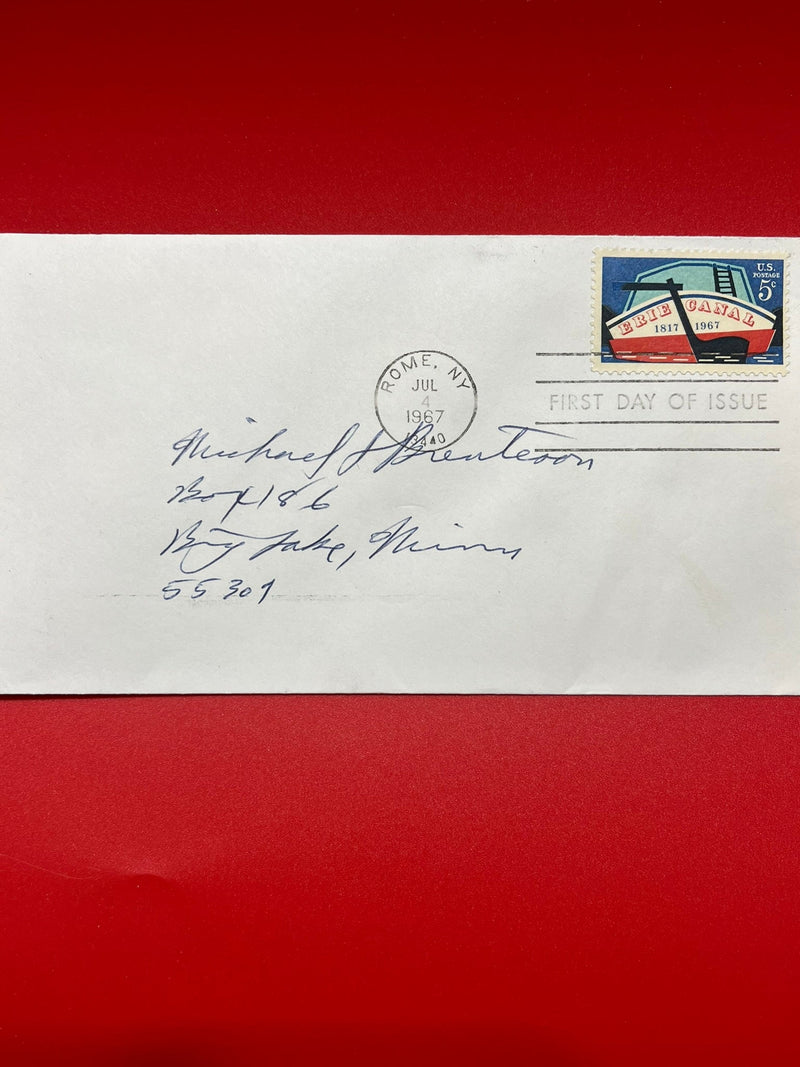 U.S.
POSTAGE
5c
ERIE CANAL
1817 1967
ROME, NY
JUL
4
1967
13440
FIRST DAY OF ISSUE
Michael J
Box 186
Big Lake, Minn
55309